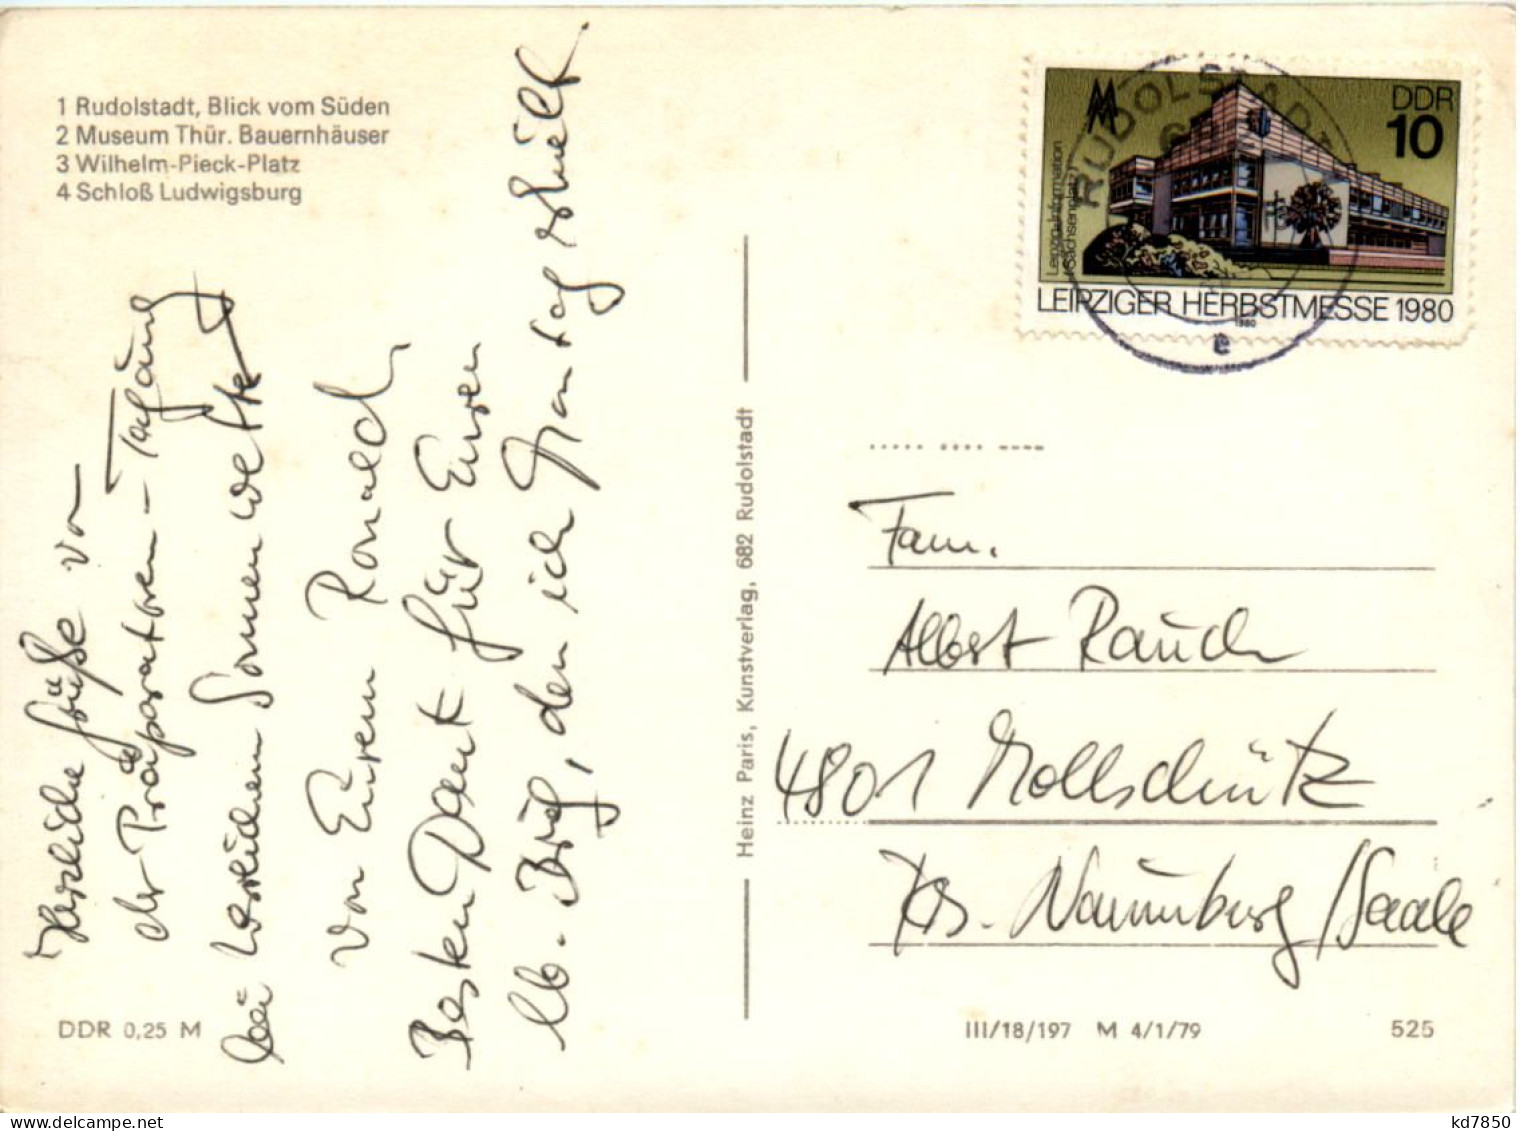 1 Rudolstadt, Blick vom Süden
2 Museum Thür. Bauernhäuser
3 Wilhelm-Pieck-Platz
4 Schloß Ludwigsburg
Herzliche Grüße von
der Präparatoren-Tagung
bei herrlichem Sonnenwetter
von Eurem Ronald
Besten Dank für Euren
lb. Brief, den ich Montag erhielt.
Heinz Paris, Kunstverlag, 682 Rudolstadt
RUDOLSTADT
DDR
10
Leipzig-Information
(Sachsenplatz)
LEIPZIGER HERBSTMESSE 1980
1980
e
Fam.
Albert Rauch
4801 Mollschütz
Krs. Naumburg/Saale
DDR 0,25 M
III/18/197 M 4/1/79
525
kd7850